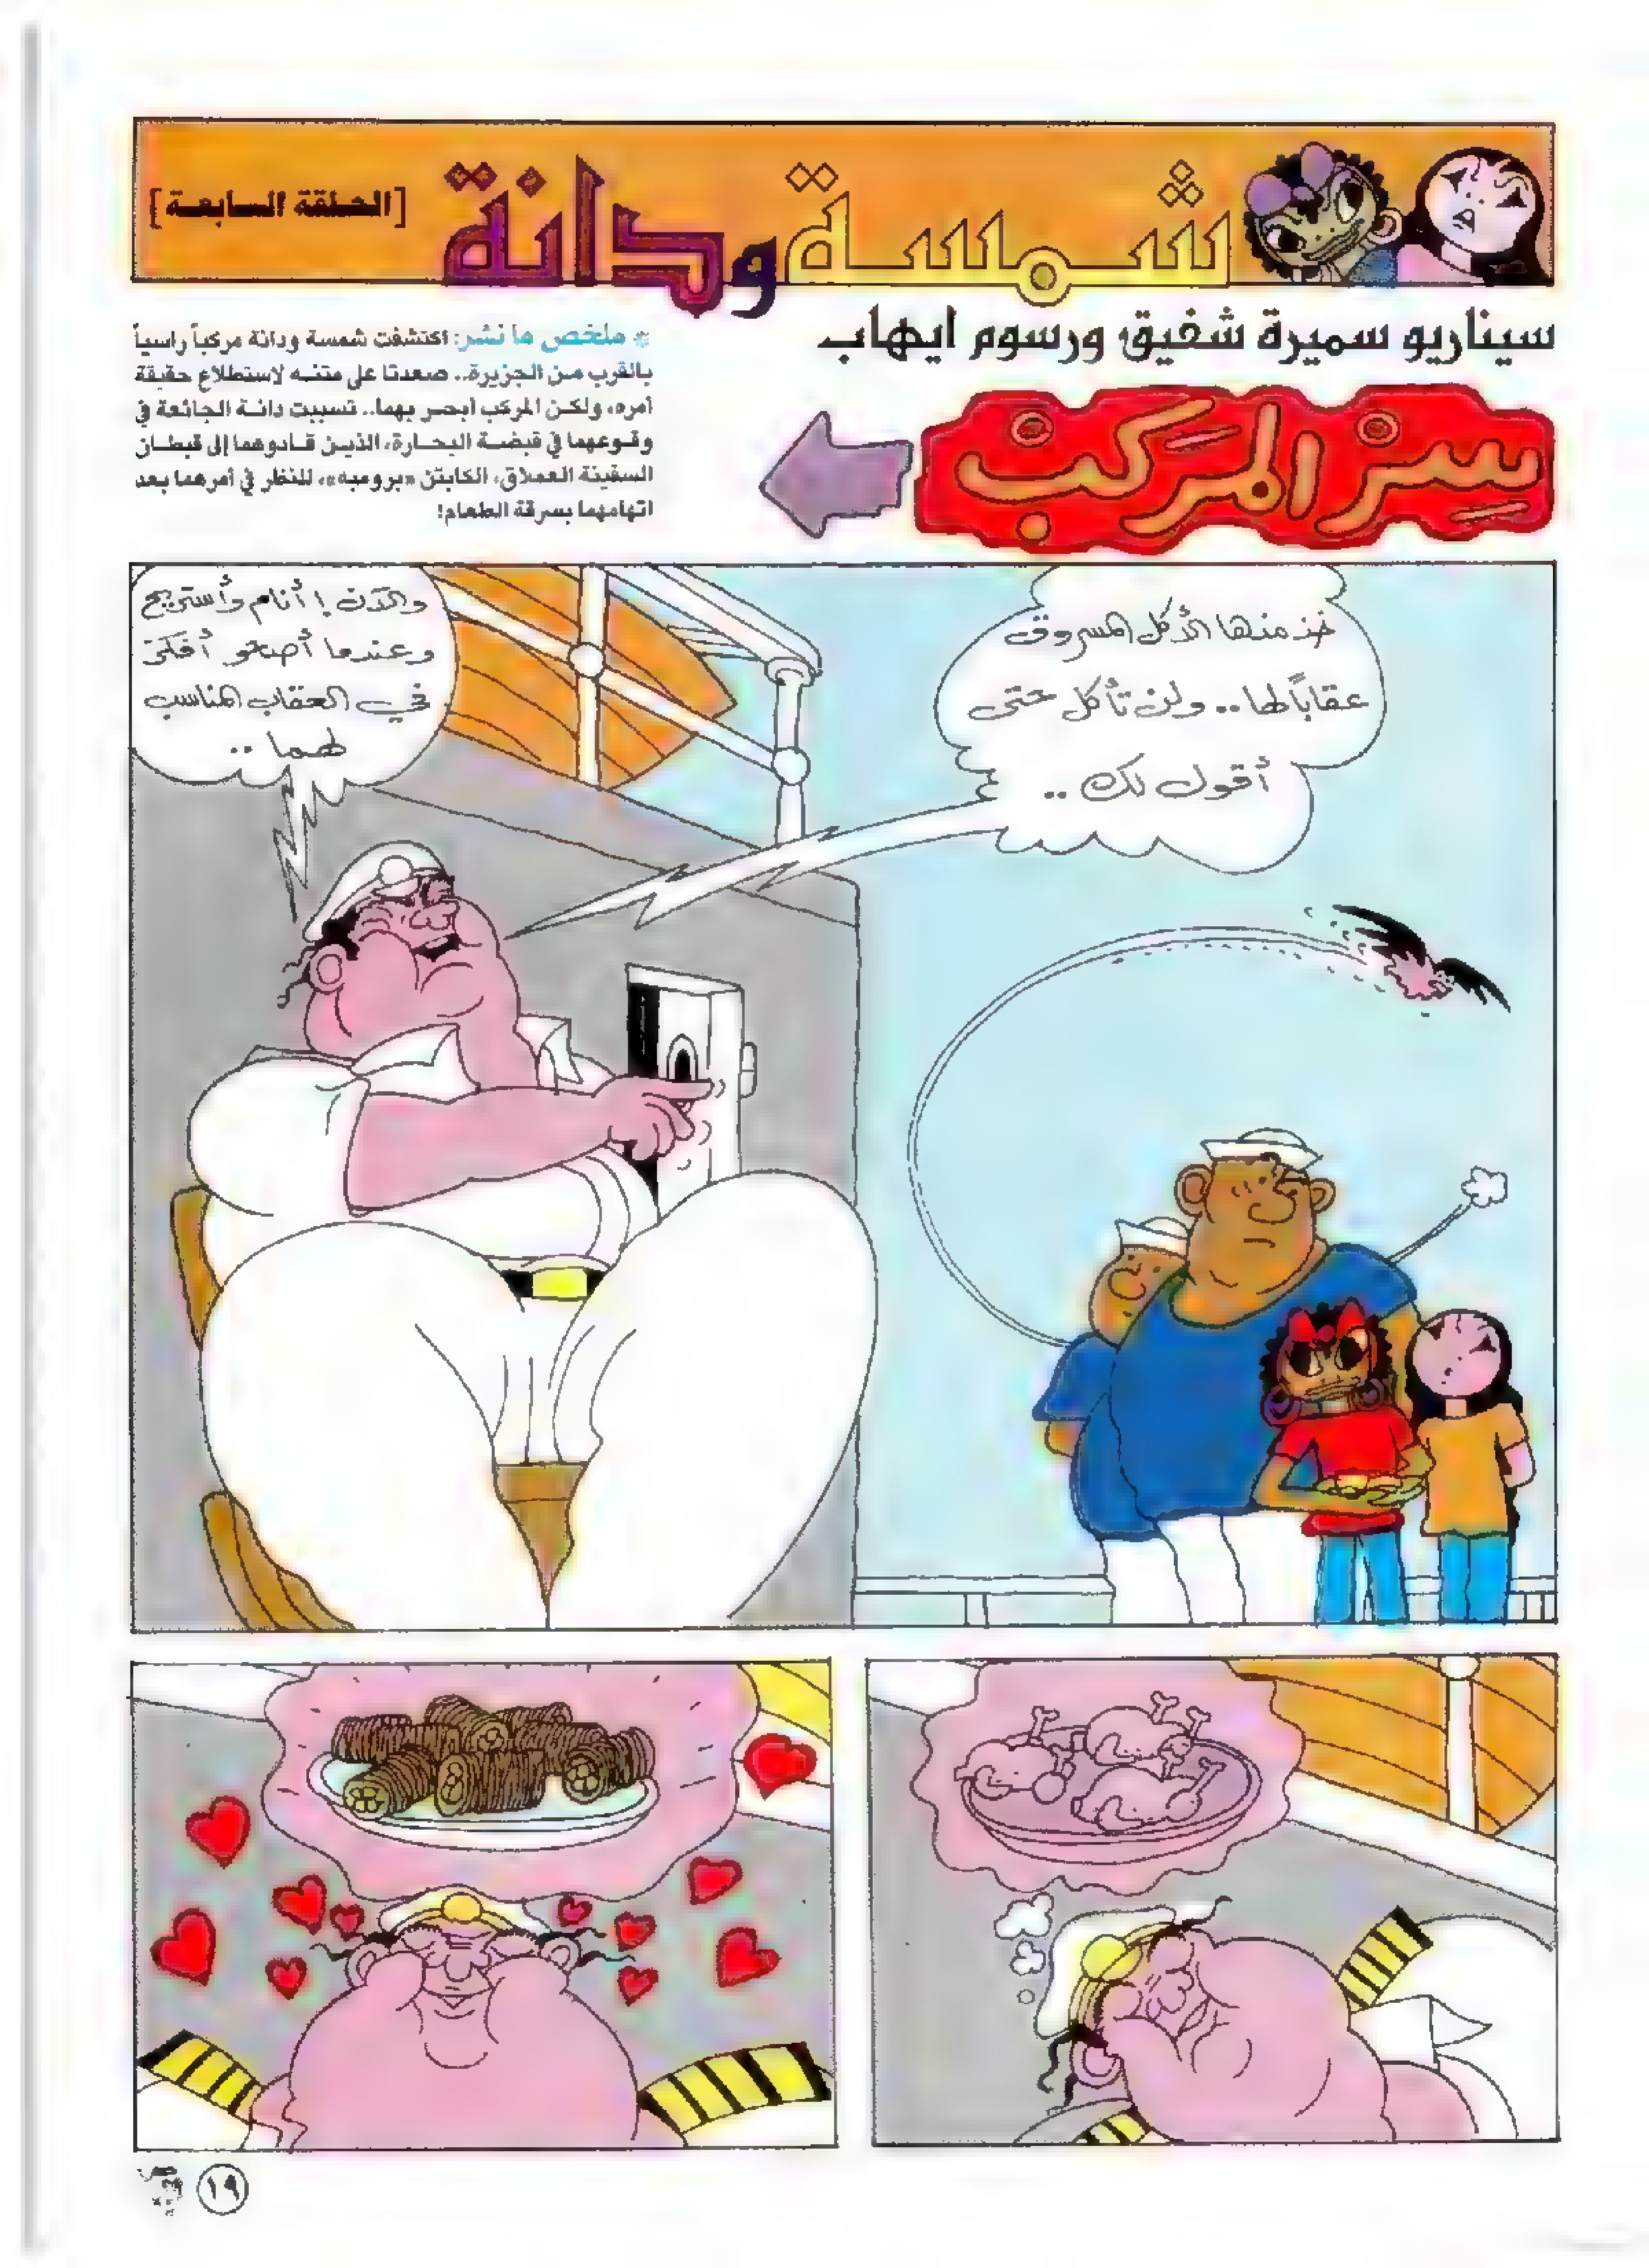 شمسة ودانة
[الحلقة السابعة]
سيناريو سميرة شفيق ورسوم ايهاب
سر المركب
* ملخص ما نشر: اكتشفت شمسة ودانة مركباً راسياً
بالقرب من الجزيرة.. صعدتا على متنه لاستطلاع حقيقة
أمره، ولكن المركب أبحر بهما.. تسببت دانة الجائعة في
وقوعهما في قبضة البحارة، الذين قادوهما إلى قبطان
السفينة العملاق، الكابتن «برومبه»، للنظر في أمرهما بعد
اتهامهما بسرقة الطعام!
خذ منها الأكل المسروق
عقاباً لها.. ولن تأكل حتى
أقول لك ..
والآن ! أنام وأستريح
وعندما أصحو أفكر
في العقاب المناسب
لهما ..
١٩